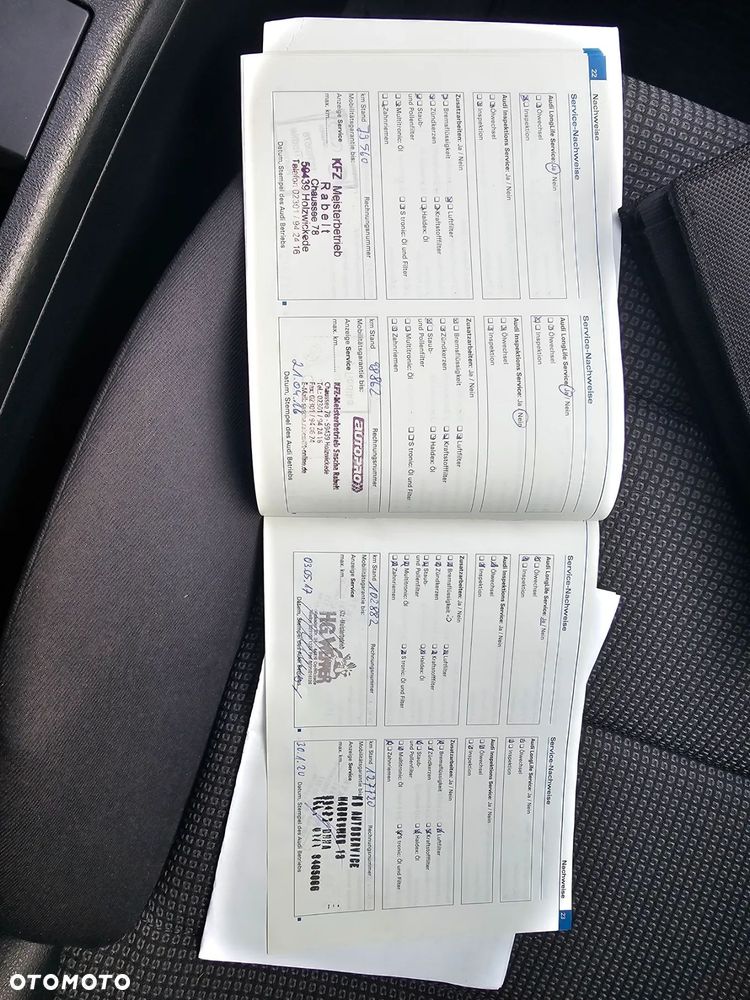 22
Nachweise
Service-Nachweise
Audi LongLife Service: Ja / Nein
Ölwechsel
Inspektion
Audi Inspektions Service: Ja / Nein
Ölwechsel
Inspektion
Zusatzarbeiten: Ja / Nein
Bremsflüssigkeit
Luftfilter
Zündkerzen
Kraftstofffilter
Staub-
und Pollenfilter
Haldex: Öl
Multitronic: Öl
S tronic: Öl und Filter
Zahnriemen
km Stand 79560
Rechnungsnummer
Mobilitätsgarantie bis:
Anzeige Service
max. km
KFZ Meisterbetrieb
Rabelt
Chaussee 78
59439 Holzwickede
Telefon: 02301 / 94 24 16
Datum, Stempel des Audi Betriebs
Service-Nachweise
Audi LongLife Service: Ja / Nein
Ölwechsel
Inspektion
Audi Inspektions Service: Ja / Nein
Ölwechsel
Inspektion
Zusatzarbeiten: Ja / Nein
Bremsflüssigkeit
Luftfilter
Zündkerzen
Kraftstofffilter
Staub-
und Pollenfilter
Haldex: Öl
Multitronic: Öl
S tronic: Öl und Filter
Zahnriemen
km Stand
Rechnungsnummer
Mobilitätsgarantie bis:
Anzeige Service
max. km
autoPRO
KFZ-Meisterbetrieb Sascha Rabelt
Chaussee 78 · 59439 Holzwickede
Tel.: 02301 / 94 24 16
21.04.16
Datum, Stempel des Audi Betriebs
Service-Nachweise
Audi LongLife Service: Ja / Nein
Ölwechsel
Inspektion
Audi Inspektions Service: Ja / Nein
Ölwechsel
Inspektion
Zusatzarbeiten: Ja / Nein
Bremsflüssigkeit
Luftfilter
Zündkerzen
Kraftstofffilter
Staub-
und Pollenfilter
Haldex: Öl
Multitronic: Öl
S tronic: Öl und Filter
Zahnriemen
km Stand 102882
Rechnungsnummer
Mobilitätsgarantie bis:
Anzeige Service
max. km
03.05.17
Datum, Stempel des Audi Betriebs
Nachweise
23
Service-Nachweise
Audi LongLife Service: Ja / Nein
Ölwechsel
Inspektion
Audi Inspektions Service: Ja / Nein
Ölwechsel
Inspektion
Zusatzarbeiten: Ja / Nein
Bremsflüssigkeit
Luftfilter
Zündkerzen
Kraftstofffilter
Staub-
und Pollenfilter
Haldex: Öl
Multitronic: Öl
S tronic: Öl und Filter
Zahnriemen
km Stand 127120
Rechnungsnummer
Mobilitätsgarantie bis:
Anzeige Service
max. km
AUTOSERVICE
30.1.20
Datum, Stempel des Audi Betriebs
OTOMOTO